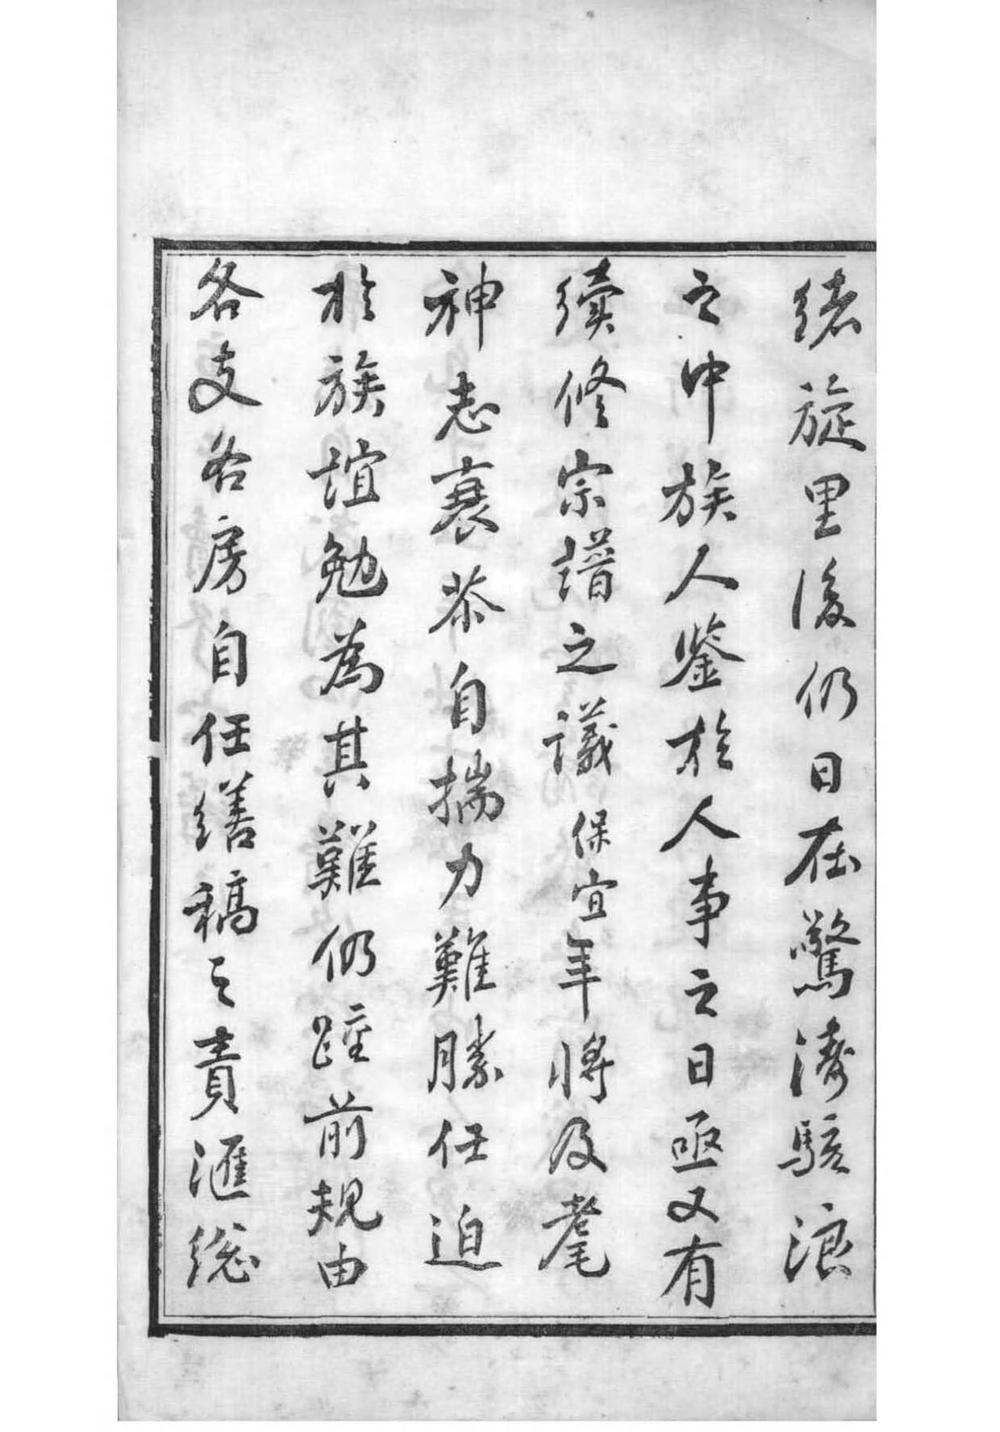 緒旋里後仍日在驚濤駭浪
之中族人鑒於人事之日亟又有
續修宗譜之議保宜年將及耄
神志衰苶自揣力難勝任迫
於族誼勉為其難仍踵前規由
各支各房自任繕稿之責滙總